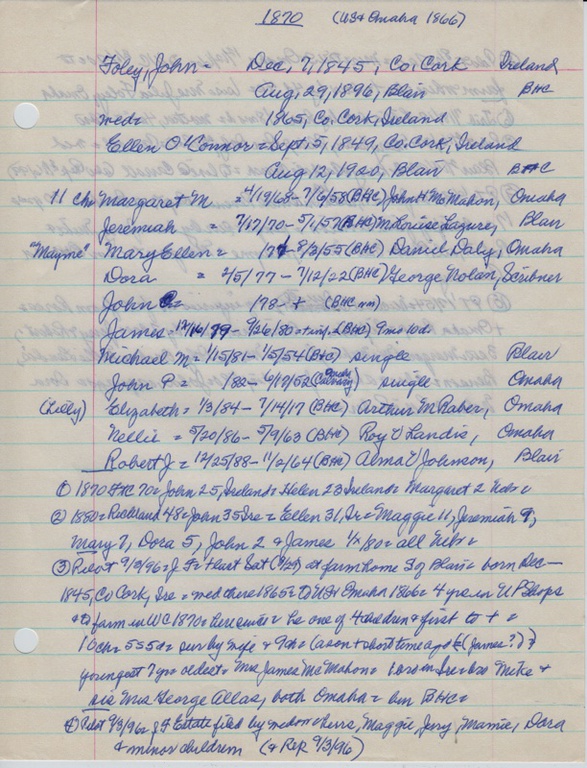 1870 (US & Omaha 1866)
Foley, John = Dec, 7, 1845, Co, Cork Ireland
Aug, 29, 1896, Blair BHC
med = 1865, Co, Cork, Ireland
Ellen O'Connor = Sept, 5, 1849, Co, Cork, Ireland
Aug 12, 1920, Blair BHC
11 Ch = Margaret M = 4/19/68 - 7/6/58 (BHC) John H McMahon, Omaha
Jeremiah = 7/17/70 - 5/1/57 (BHC) M Louise Lazure, Blair
"Mayme" Mary Ellen = /74 - 8/2/55 (BHC) Daniel Daly, Omaha
Dora = 2/5/77 - 7/12/22 (BHC) George Nolan, Scribner
John = /78 - + (BHC nm)
James - 12/16/79 - 9/26/80 (BHC) 9 mo 10 ds
Michael M = 1/15/81 - 1/5/54 (BHC) single Blair
John P = /82 - 6/17/52 (Omaha Calvary) single Omaha
(Lilly) Elizabeth = 1/3/84 - 7/14/17 (BHC) Arthur M Raber, Omaha
Nellie = 5/20/86 - 5/9/63 (BHC) Roy E Landis, Omaha
Robert J = 12/25/88 - 11/2/64 (BHC) Alma V Johnson, Blair
① 1870 70 = John 25, Ireland = Helen 23 Ireland = Margaret 2 Neb =
② 1880 = Richland 48 = John 35 Ire = Ellen 31, Ir = Maggie 11, Jeremiah 9,
Mary 7, Dora 5, John 2 & James 1/2 /80 = all Neb =
③ Pilot 9/3/96 = J F + last Sat (8/29) at farm home 3 of Blair = born Dec -
1845, Co Cork, Ire = med there 1865 = to US & Omaha 1866 = 4 yrs in UP Shops
& to farm in WC 1870 = here since = he one of 4 children & first to + =
10 ch = 5 s 5 d = surv by wife & 9 ch = (a son + short time ago (James?) )
youngest 7 yr = oldest = Mrs James McMahon = bro in Ire = bro Mike &
sis Mrs George Allas, both Omaha = bur BHC =
④ Pilot 9/3/96 = J F Estate filed by widow & heirs, Maggie, Jerry, Mamie, Dora
& minor children (& Rep 9/3/96)